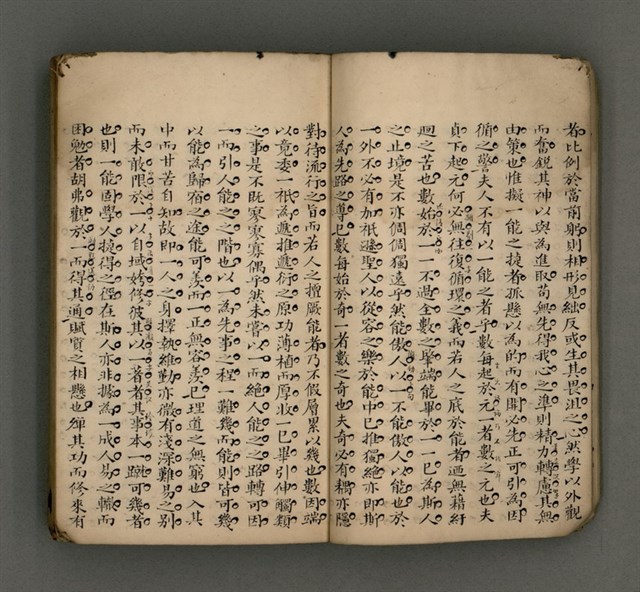 者比例於當前躬則相形見絀反或生其畏沮之心然學以外觀
而奮銳其神以與為進取苟無先得我心之準則精力轉慮其無
由策也惟擬一能之捷者孤懸以為的而有開必先正可引為因
循之警夫人不有以一能之者乎數每起於元一者數之元也夫
貞下起元何必無往復循環之義而若人之底於能者迺無藉紆
迴之苦也數始於一一不過全數之肇端能畢於一一已為斯人
之止境是不亦倜倜獨遠乎然能傲人以一不能傲人以能也於
一外不必有加祇遜聖人以從容之樂於能中已推獨絕亦即斯
人為先路之導已數每始於奇一者數之奇也夫奇必有耦亦隱
對待流行之旨而若人之擅厥能者乃不假層累以幾也數因端
以竟委一祇為遞推遞衍之原功薄植而厚收一已畢引伸觸類
之事是不既寥寥寡偶乎然未嘗以一而絕人能之之路轉可因
一而引人能之之階也以一為先事之程一難幾而能則皆可幾
以能為歸宿之途能可羨而一正無容羨已理道之無窮也入其
中而甘苦自知故即一人之身擇執維勤亦微有淺深難易之別
而未敢限於一以自域姱修彼其以一著者其事本一蹴可幾者
也則一能固學人捷得之徑在斯人亦非據為一成人易之轍而
困勉者胡弗觀於一而得其通賦質之相懸也殫其功而修來有